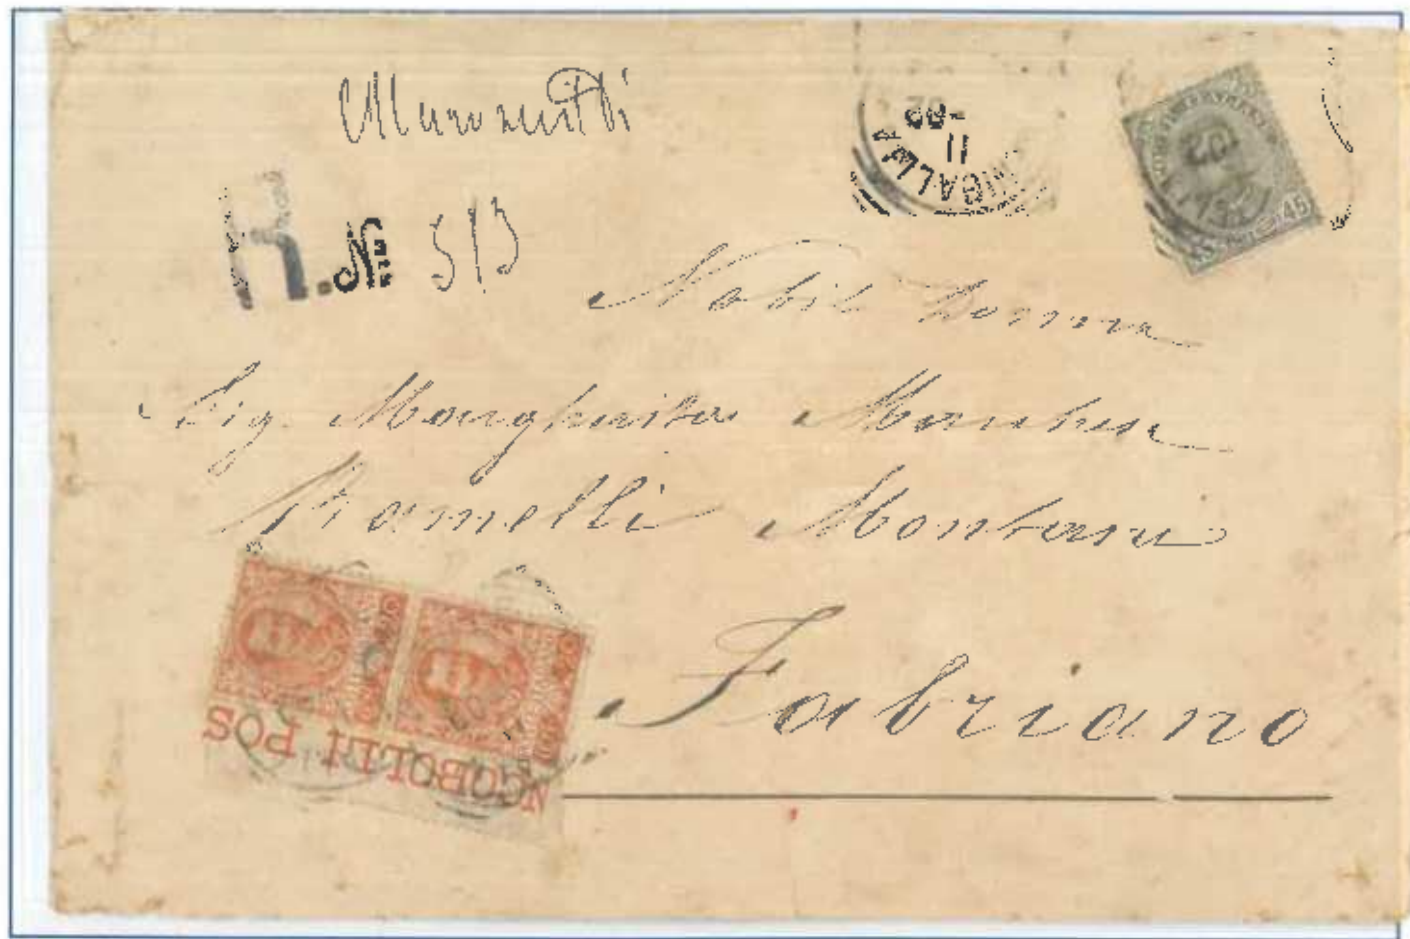 R. Nº 513
NIGALLIA
11
-02
45
Nobil Donna
Sig. Margherita Marchesa
Ramelli Montani
Fabriano
NCOBOLLI POS